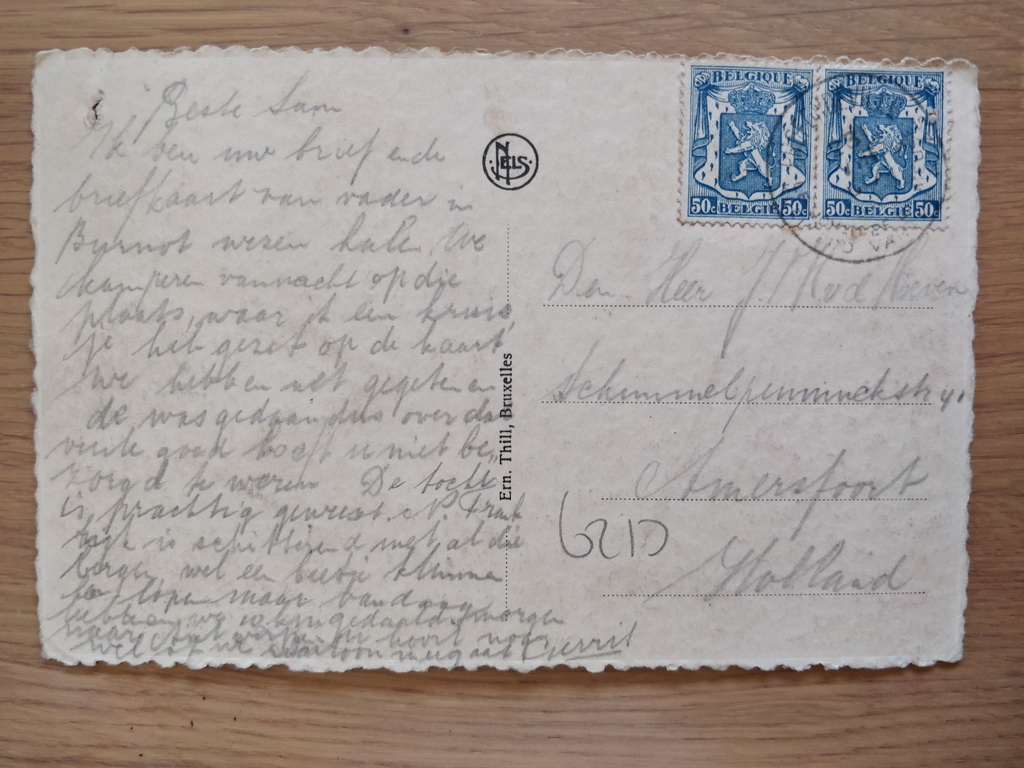 Beste Sam
Ik ben uw brief en de
briefkaart van vader in
Burnot wesen halen. We
kamperen vannacht op die
plaats, waar ik een kruis,
je heb gezet op de kaart
we hebben net gegeten en
de was gedaan dus over da
voeda goed hoeft u niet be,,
zorgd te weren. De tocht
is prachtig geweest. N. Frank
rijk is schitterend met al die
bergen, wel een beetje klimmen
lopen maar vandaag
hebben we morgen
naar en hoort
wel of we Gerrit
NELS
Ern. Thill, Bruxelles
BELGIQUE
50c BELGIË 50c
BELGIQUE
50c BELGIË 50c
Den Heer J. v d Hoeven
Schimmelpenninckstr 41
Amersfoort
Holland